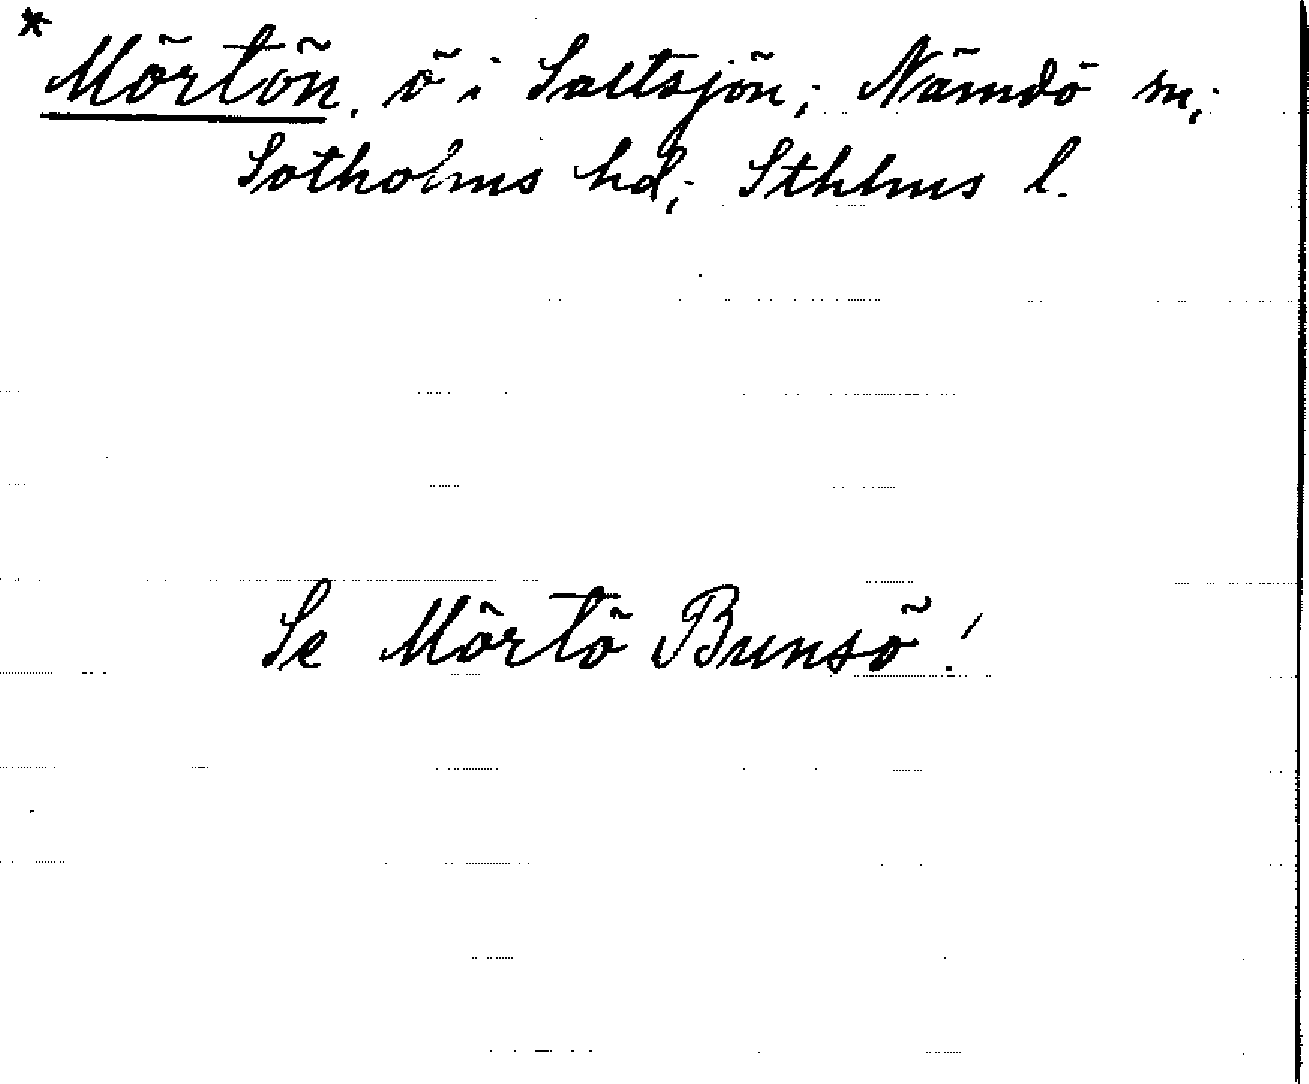 * Mörtön, ö i Saltsjön; Nämdö sn;
Sotholms hd; Sthlms l.
Se Mörtö Bunsö!